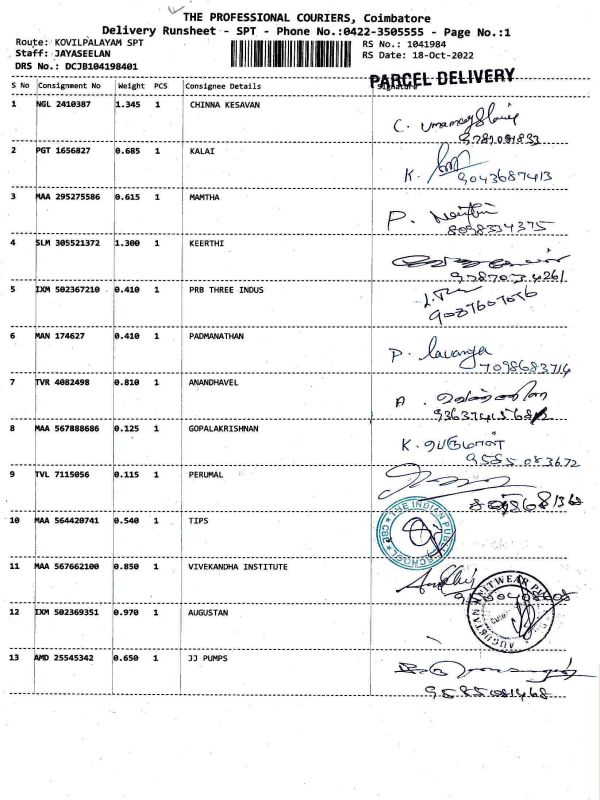 THE PROFESSIONAL COURIERS, Coimbatore
Delivery Runsheet - SPT - Phone No.:0422-3505555 - Page No.:1
Route: KOVILPALAYAM SPT
Staff: JAYASEELAN
DRS No.: DCJB104198401
RS No.: 1041984
RS Date: 18-Oct-2022
PARCEL DELIVERY
S No Consignment No Weight PCS Consignee Details Signature
1 NGL 2410387 1.345 1 CHINNA KESAVAN
C.
2 PGT 1656827 0.685 1 KALAI
K.
9043687413
3 MAA 295275586 0.615 1 MAMTHA
P.
8098334375
4 SLM 305521372 1.300 1 KEERTHI
5 IXM 502367210 0.410 1 PRB THREE INDUS
6 MAN 174627 0.410 1 PADMANATHAN
P. lavanya
7098683714
7 TVR 4082498 0.810 1 ANANDHAVEL
A.
8 MAA 567888686 0.125 1 GOPALAKRISHNAN
K. பெருமாள்
9585083672
9 TVL 7115056 0.115 1 PERUMAL
10 MAA 564420741 0.540 1 TIPS
THE INDIAN PUBLIC SCHOOL CBE
11 MAA 567662100 0.850 1 VIVEKANDHA INSTITUTE
12 IXM 502369351 0.970 1 AUGUSTAN
AUGUSTAN KNITWEAR
13 AMD 25545342 0.650 1 JJ PUMPS
9585081468